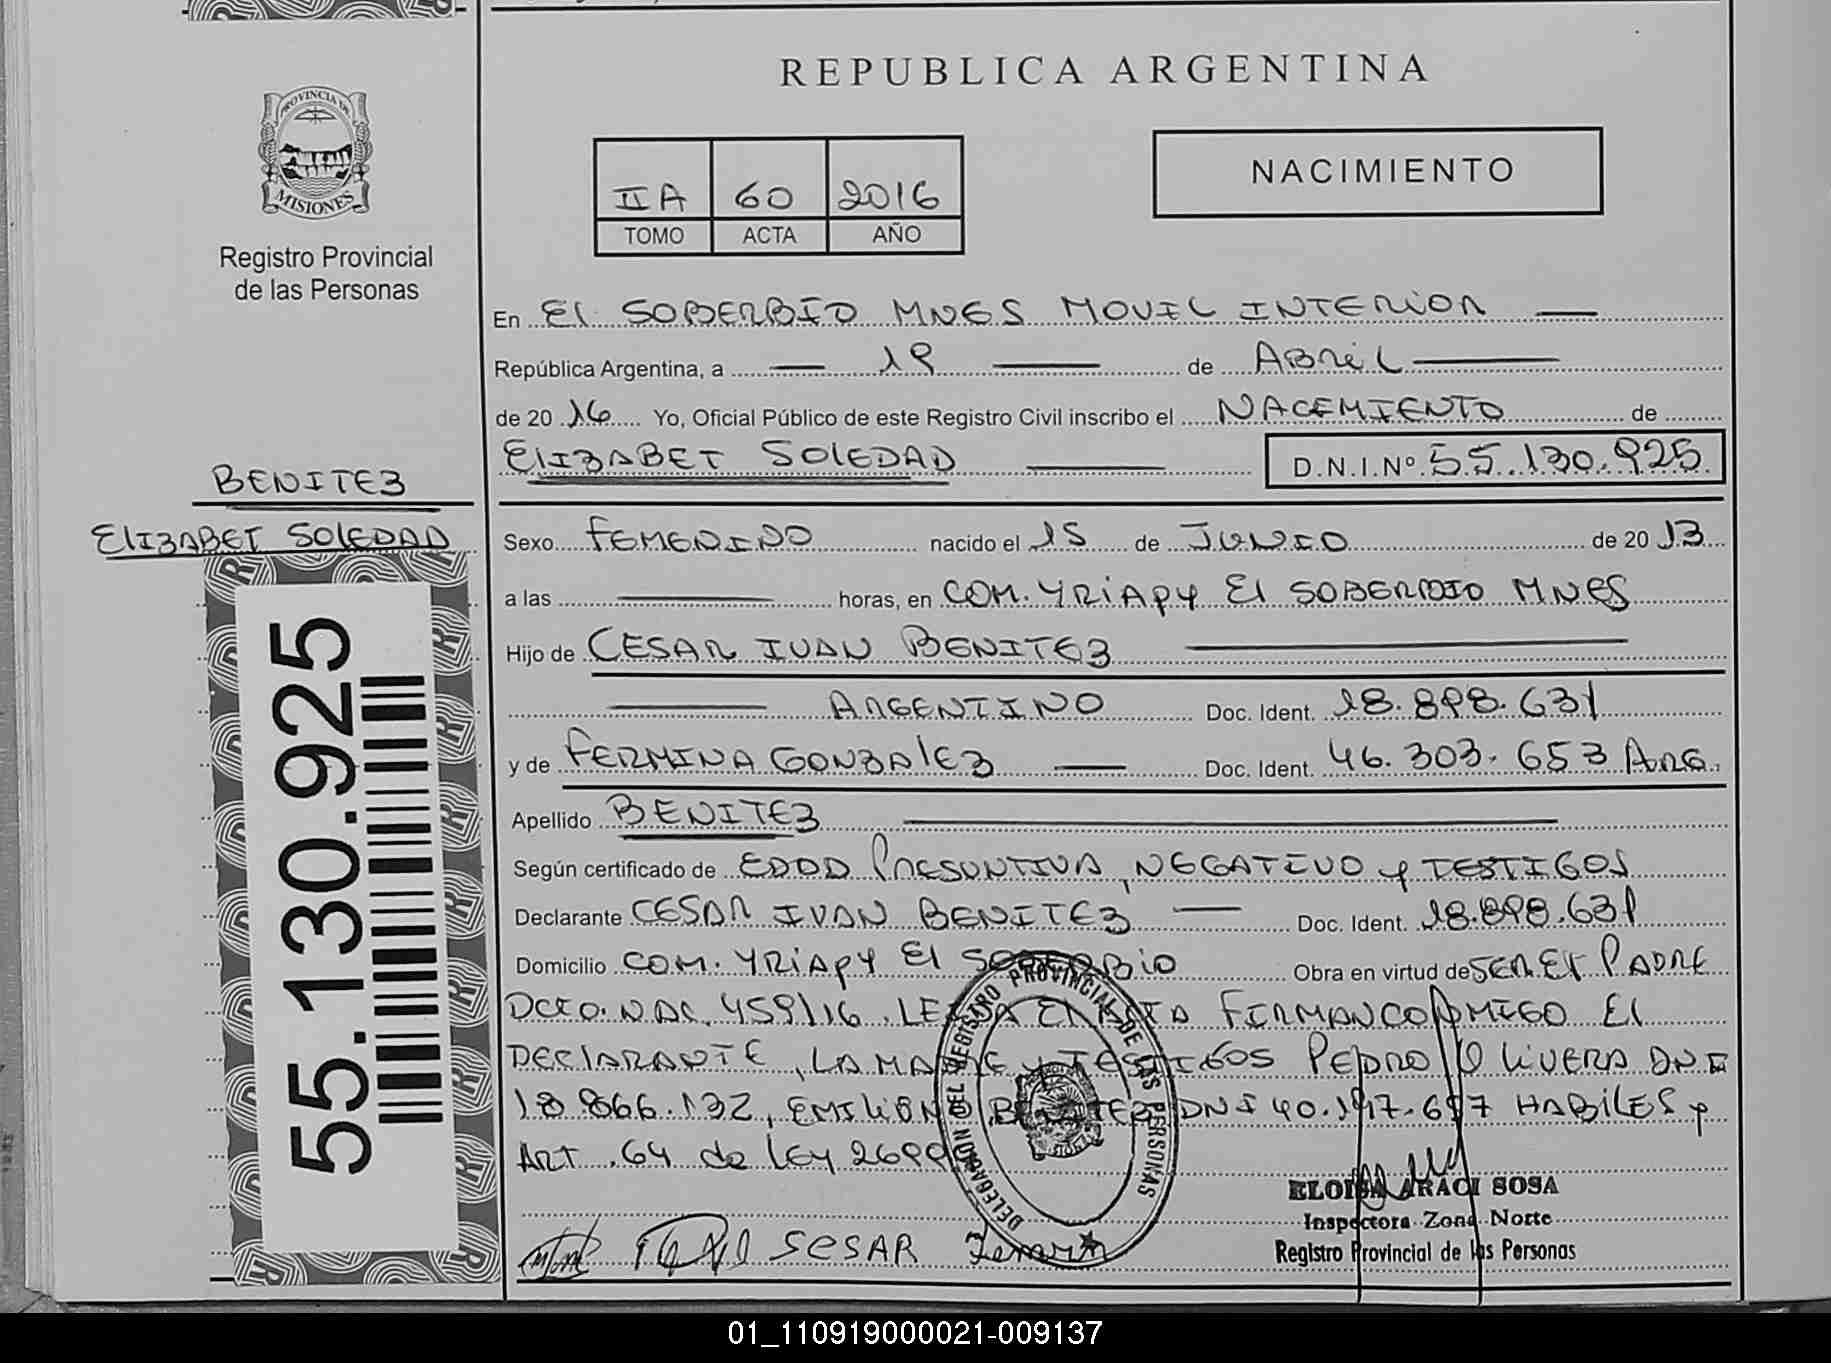 REPUBLICA ARGENTINA
PROVINCIA DE
MISIONES
Registro Provincial
de las Personas
IIA 60 2016
TOMO ACTA AÑO
NACIMIENTO
En El SOBERBIO MNES MOVIL INTERIOR
República Argentina, a 19 de ABRIL
de 2016 Yo, Oficial Público de este Registro Civil inscribo el NACEMIENTO de
ELIZABET SOLEDAD D.N.I.Nº 55.130.925
BENITEZ
ELIZABET SOLEDAD
55.130.925
Sexo FEMENINO nacido el 15 de JUNIO de 2013
a las horas, en COM. YRIAPY El SOBERBIO MNES
Hijo de CESAR IVAN BENITEZ
ARGENTINO Doc. Ident. 18.898.631
y de FERMINA GONZALEZ Doc. Ident. 46.303.653 ARG.
Apellido BENITEZ
Según certificado de EDAD PRESUNTIVA, NEGATIVO y TESTIGOS
Declarante CESAR IVAN BENITEZ Doc. Ident. 18.898.631
Domicilio COM. YRIAPY El SOBERBIO Obra en virtud de SER EL PADRE
DCTO. NAC. 459/16. LEIDA EL ACTA FIRMAN COMIGO El
DECLARANTE, LA MADRE y TESTIGOS PEDRO OLIVERA DNI
18.866.132, EMILIANO BENITEZ DNI 40.197.697 HABILES y
ART. 64 de LEY
DELEGACION DEL REGISTRO PROVINCIAL DE LAS PERSONAS
SESAR
ELOISA ARACI SOSA
Inspectora Zona Norte
Registro Provincial de las Personas
01_110919000021-009137